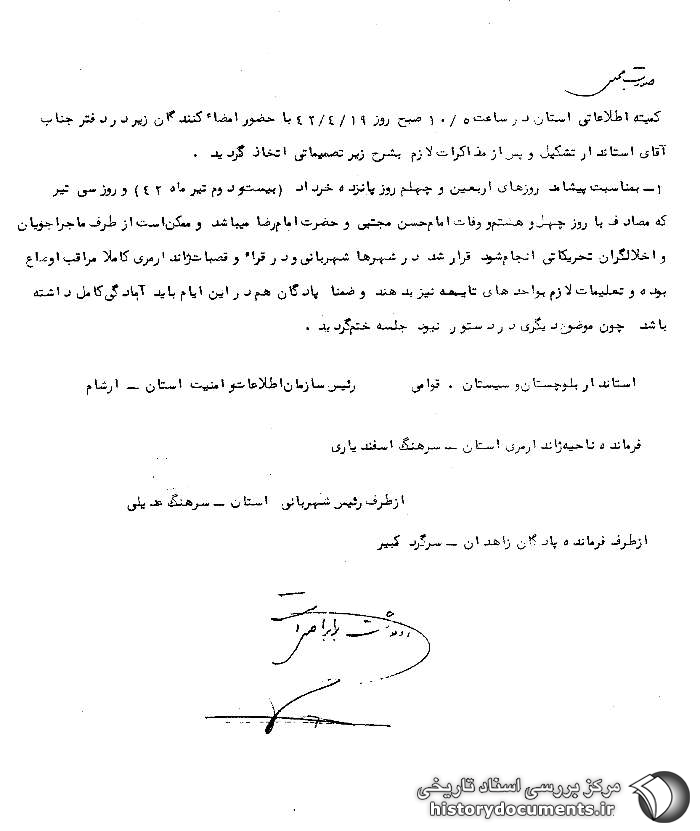 صورت مجلس
کمیته اطلاعاتی استان در ساعت ۱۰/۵ صبح روز ۴۲/۴/۱۹ با حضور امضاء کنندگان زیر در دفتر جناب
آقای استاندار تشکیل و پس از مذاکرات لازم بشرح زیر تصمیماتی اتخاذ گردید .
۱ــ بمناسبت پیشامد روزهای اربعین و چهلم روز پانزده خرداد (بیست و دوم تیر ماه ۴۲) و روز سی تیر
که مصادف با روز چهل و هشتم و وفات امام حسن مجتبی و حضرت امام رضا میباشد و ممکن است از طرف ماجراجویان
و اخلالگران تحریکاتی انجام شود قرار شد در شهرها شهربانی و در قراء و قصبات ژاندارمری کاملا مراقب اوضاع
بوده و تعلیمات لازم بواحدهای تابعه نیز بدهند و ضمنا پادگان هم در این ایام باید آمادگی کامل داشته
باشد چون موضوع دیگری در دستور نبود جلسه ختم گردید .
استاندار بلوچستان و سیستان . قوامی رئیس سازمان اطلاعات و امنیت استان ــ ارشام
فرمانده ناحیه ژاندارمری استان ــ سرهنگ اسفندیاری
از طرف رئیس شهربانی استان ــ سرهنگ عدیلی
از طرف فرمانده پادگان زاهدان ــ سرگرد کبیر
رونوشت برابر اصل است
مرکز بررسی اسناد تاریخی
historydocuments.ir